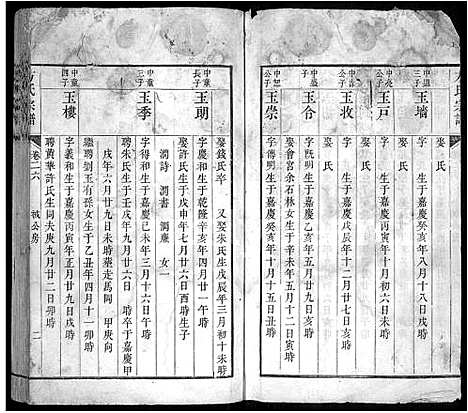 方氏宗譜
中謚子
玉墻
字
生于嘉慶癸亥年八月十八日戌時
娶 氏
中亮子
玉戸
字
生于嘉慶丙寅年十二月
時
娶 氏
玉收
字
生于嘉慶戊辰年十二月廿七日亥時
娶 氏
玉令
字既明生于嘉慶辛未年五月廿九日亥時
娶會宮余石林女生于辛未年
月
時
中恕子
玉崇
字傳明生于嘉慶癸亥年十月
時
娶 氏
中童長子
玉朗
字慶和生于乾隆辛亥年四月廿一日午時
娶許氏生于戊申年七月廿六日酉時生子
娶錢氏卒
又娶朱氏生戊辰年三月初十未時
潤詩 潤書 潤庵 女一
中童三子
玉季
字
和生于嘉慶己未年三月十六日午時
聘朱氏生于壬戌年九月廿六日
時卒于嘉慶甲
戌年
月
日
時葬走馬岡 甲庚向
中童四子
玉樓
字義和生于嘉慶丙寅年正月廿九日戌時
繼聘劉玉有孫女生于乙丑年四月十一卯時
聘黄華許氏生同夫庚九月廿二日卯時
方氏宗譜
卷二六
城公房
二